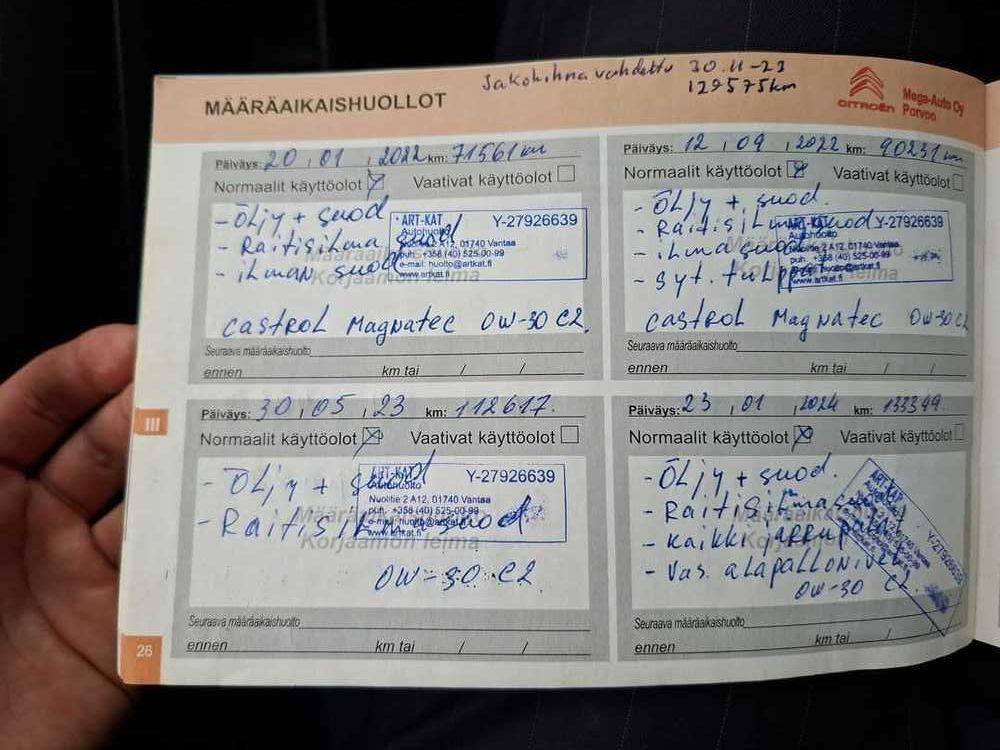 Jakohihna vaihdettu 30.11-23
129575km
MÄÄRÄAIKAISHUOLLOT
CITROËN
Mega-Auto Oy
Porvoo
Päiväys: 20 , 01 , 2022 km: 71561 km
Normaalit käyttöolot Vaativat käyttöolot
- ÖLjy + suod
- Raitisilma suod
- ilman suod
ART-KAT Y-27926639
Autohuolto
Nuolitie 2 A12, 01740 Vantaa
puh. +358 (40) 525-00-99
e-mail: huolto@artkat.fi
www.artkat.fi
Korjaamon leima
CASTROL MagNatec 0W-30 C2.
Seuraava määräaikaishuolto
ennen km tai / /
Päiväys: 12 , 09 , 2022 km: 90231 km
Normaalit käyttöolot Vaativat käyttöolot
- ÖLjy + suod.
- Raitisilma suod
- ilma suod
- syt. tulpat
ART-KAT Y-27926639
Autohuolto
Nuolitie 2 A12, 01740 Vantaa
puh. +358 (40) 525-00-99
huolto@artkat.fi
www.artkat.fi
Korjaamon leima
CASTROL MagNatec 0W-30 C2
Seuraava määräaikaishuolto
ennen km tai / /
III
Päiväys: 30 , 05 , 23 km: 112617.
Normaalit käyttöolot Vaativat käyttöolot
- ÖLjy + suod
- Raitisilmasuod.
ART-KAT Y-27926639
Autohuolto
Nuolitie 2 A12, 01740 Vantaa
puh. +358 (40) 525-00-99
e-mail: huolto@artkat.fi
www.artkat.fi
Korjaamon leima
0W-30 C2
Seuraava määräaikaishuolto
ennen km tai / /
Päiväys: 23 , 01 , 2024 km: 133349.
Normaalit käyttöolot Vaativat käyttöolot
- ÖLjy + suod.
- Raitisilma
- kaikki jarrupalat
- Vas. alapallonivel
0W-30 C2.
ART-KAT Y-27926639
Seuraava määräaikaishuolto
ennen km tai / /
26